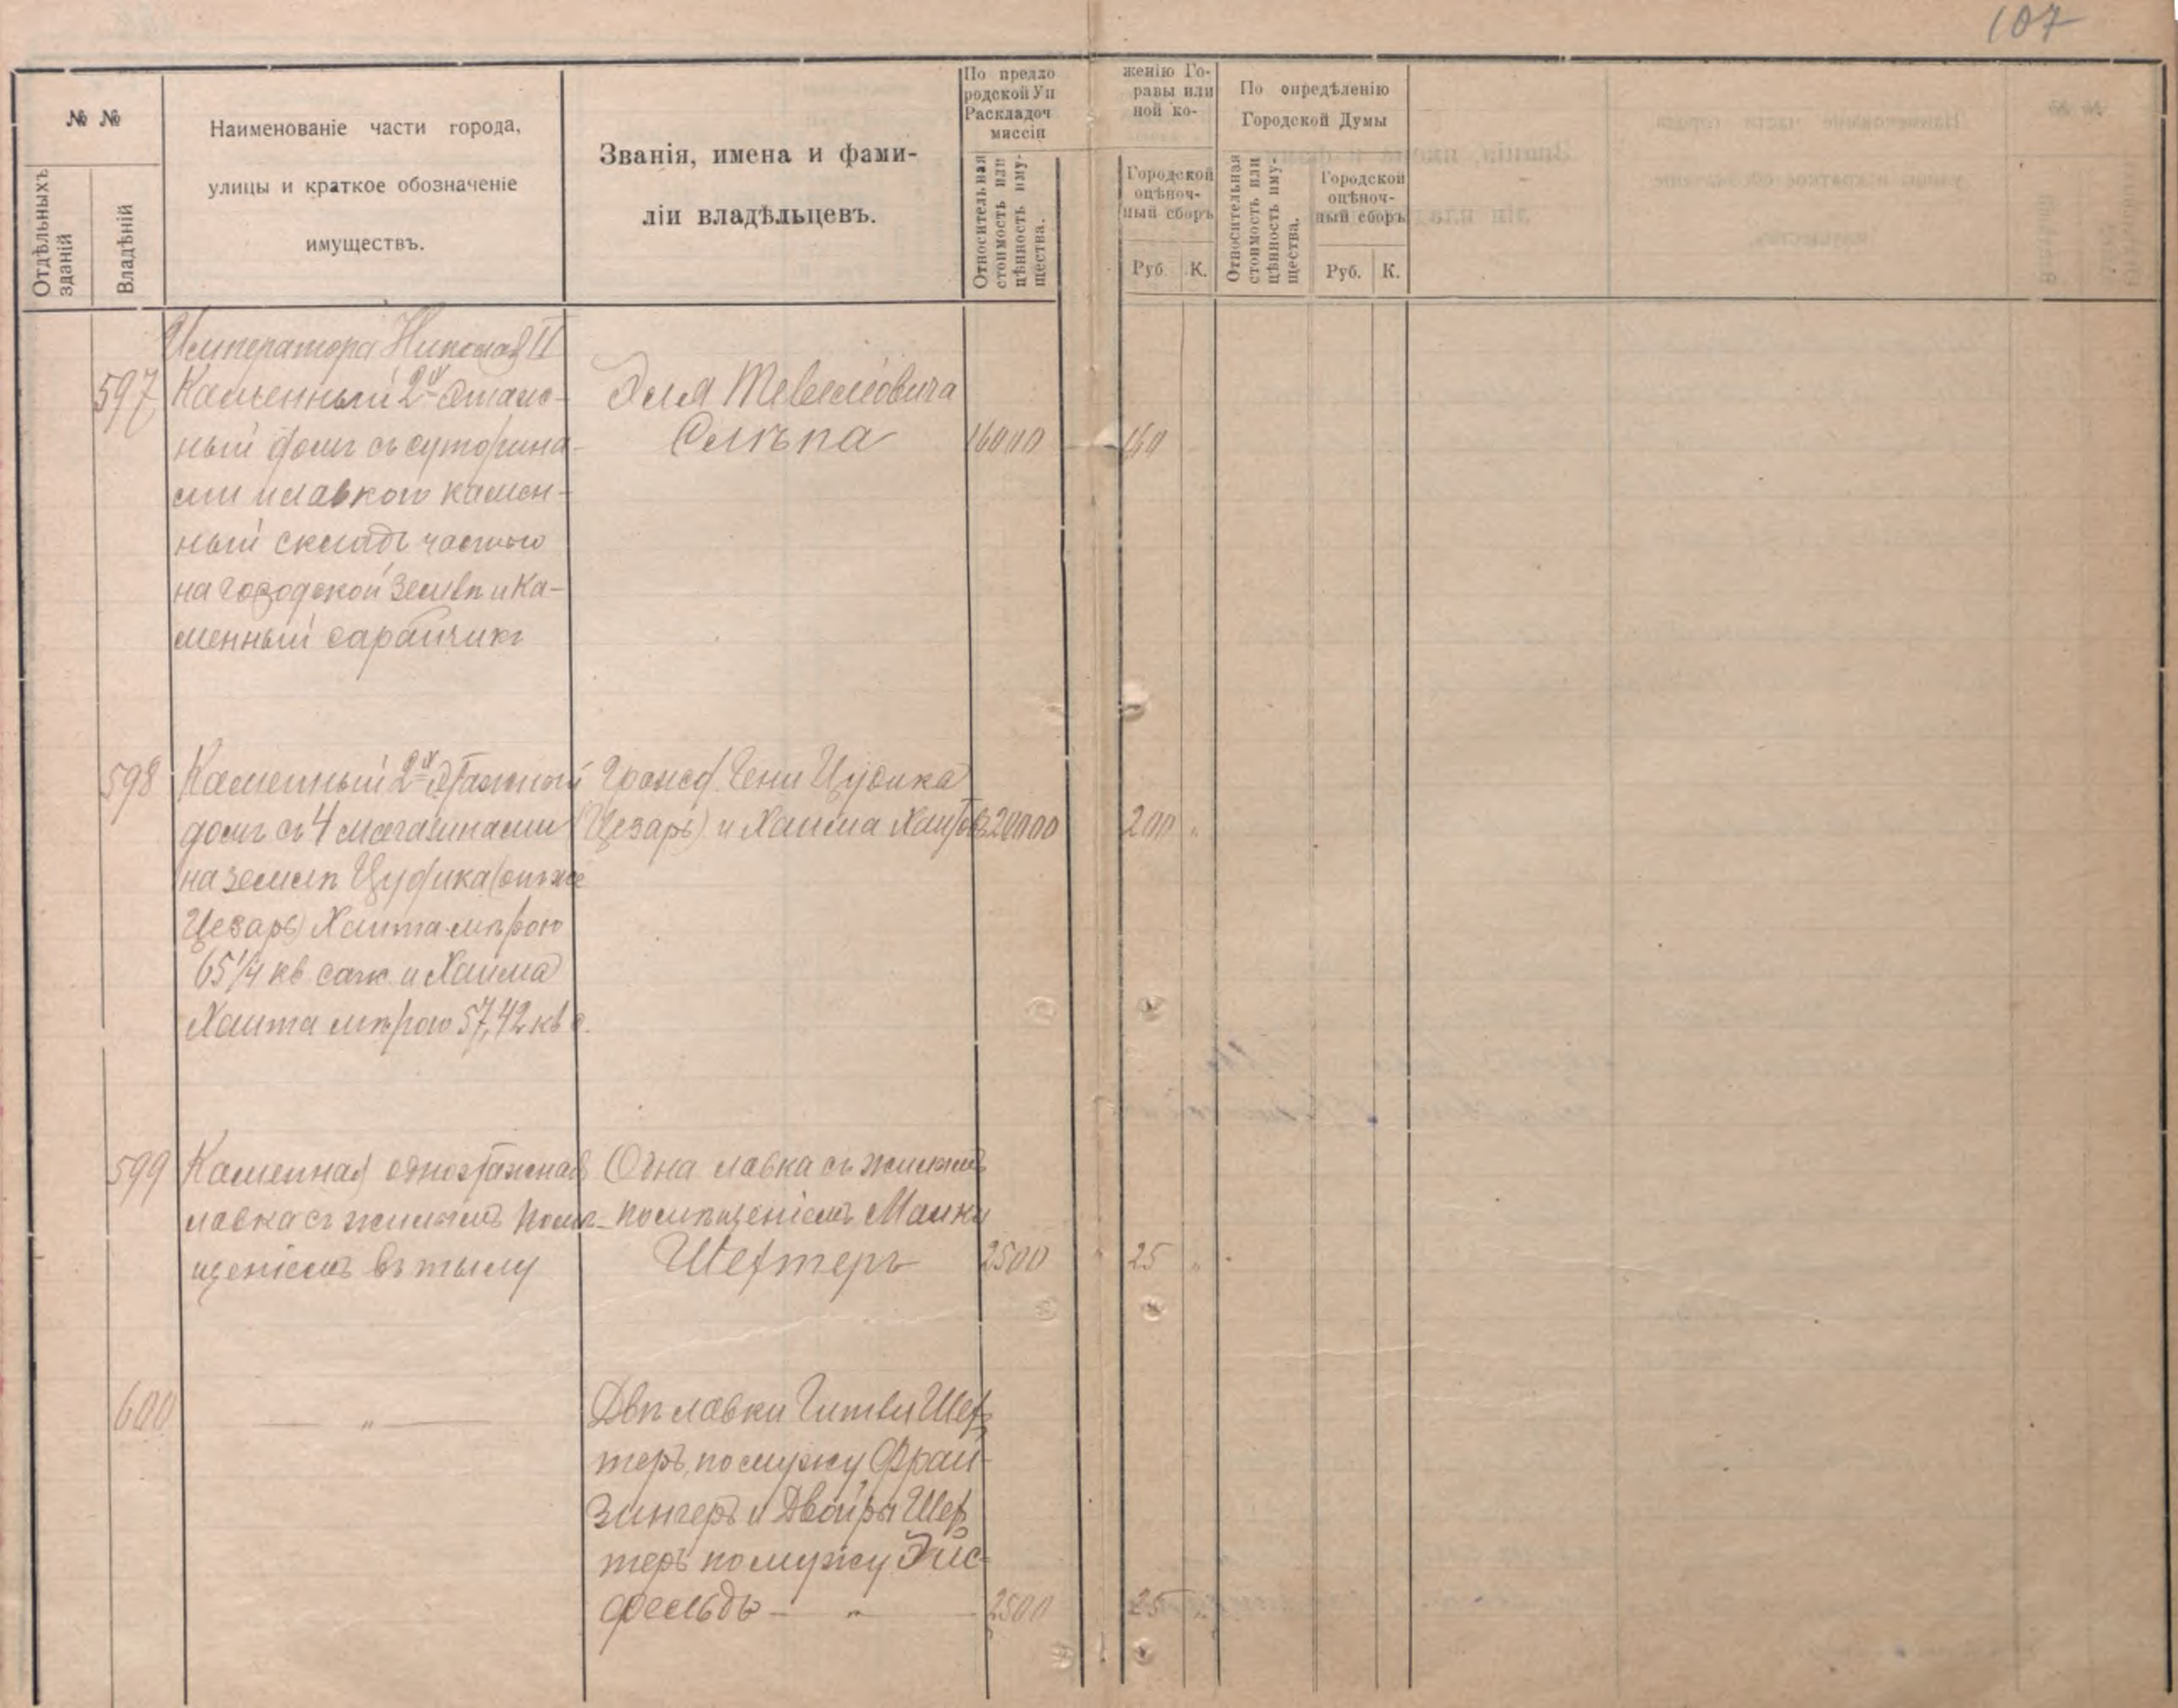 107
№ №
Отдѣльныхъ зданій
Владѣній
Наименованіе части города,
улицы и краткое обозначеніе
имуществъ.
Званія, имена и фами-
ліи владѣльцевъ.
По предло
родской Уп
Раскладоч
миссіи
женію Го-
равы или
ной ко-
Относительная
стоимость или
цѣнность иму-
щества.
Городской
оцѣноч-
ный сборъ
Руб. К.
По опредѣленію
Городской Думы
Относительная
стоимость или
цѣнность иму-
щества.
Городской
оцѣноч-
ный сборъ
Руб. К.
Императора Николая II
597 Каменный 2х этаж-
ный домъ съ суторина-
ми и лавкою камен-
ный складъ частью
на городской землѣ и ка-
менный сарайчикъ
Эля
Слѣпа 16000 160
598 Каменный 2х этажный
домъ съ 4 магазинами
на землѣ Цудика (онъ же
Цезарь) Хаита мѣрою
65 1/4 кв саж и Хаима
Хаита мѣрою 57,42 кв с.
Цудика
(Цезарь) и Хаима Хаитовъ 20000 200 "
599 Каменная одноэтажная
лавка съ жилымъ помѣ-
щеніемъ въ тылу
Одна лавка съ жилымъ
помѣщеніемъ Манки
Шефтеръ 2500 25 "
600 — " —
Двѣ лавки Гитли Шеф-
теръ, по мужу Фрай-
зингеръ и Двойры Шеф
теръ по мужу Эйс-
фельдъ — " — 2500 25 "